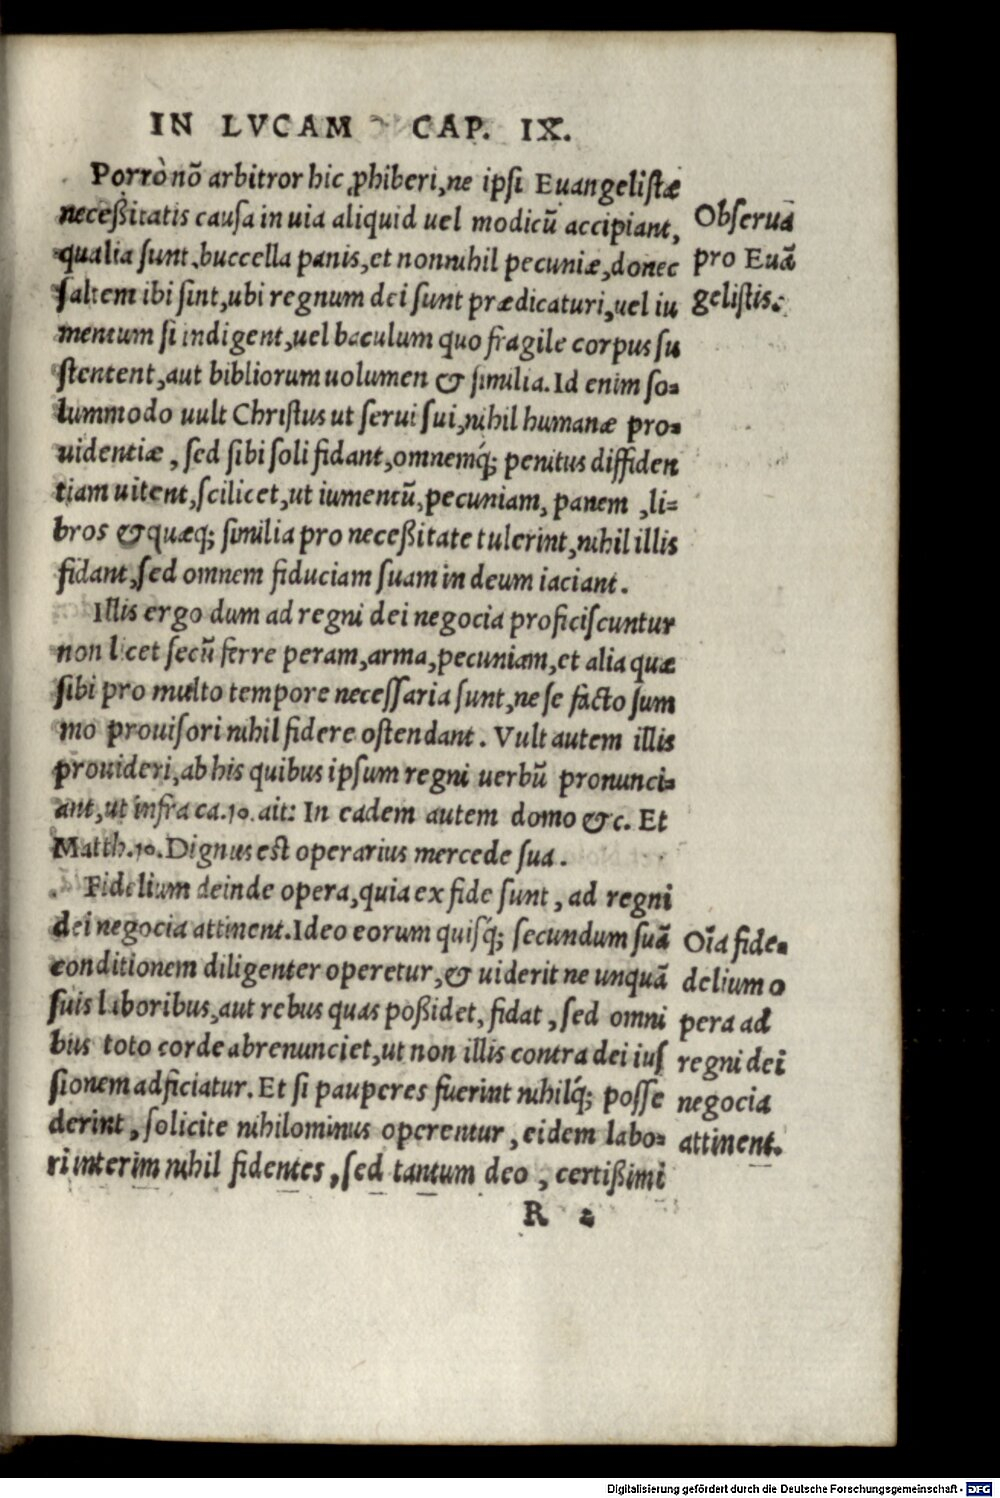 IN LVCAM CAP. IX.
Porrò nõ arbitror hic ꝓhiberi, ne ipsi Euangelistæ
neceßitatis causa in uia aliquid uel modicũ accipiant,
qualia sunt, buccella panis, et nonnihil pecuniæ, donec
saltem ibi sint, ubi regnum dei sunt prædicaturi, uel iu
mentum si indigent, uel baculum quo fragile corpus su
stentent, aut bibliorum uolumen & similia. Id enim so-
lummodo uult Christus ut serui sui, nihil humanæ pro-
uidentiæ, sed sibi soli fidant, omnemq́; penitus diffiden
tiam uitent, scilicet, ut iumentũ, pecuniam, panem, li-
bros & quæq; similia pro neceßitate tulerint, nihil illis
fidant, sed omnem fiduciam suam in deum iaciant.
Obseruã
pro Euã
gelistis.
Illis ergo dum ad regni dei negocia proficiscuntur
non licet secũ ferre peram, arma, pecuniam, et alia quæ
sibi pro multo tempore necessaria sunt, ne se facto sum
mo prouisori nihil fidere ostendant. Vult autem illis
prouideri, ab his quibus ipsum regni uerbũ pronunci-
ant, ut infra ca.10. ait: In eadem autem domo &c. Et
Matth.10. Dignus est operarius mercede sua.
Fidelium deinde opera, quia ex fide sunt, ad regni
dei negocia attinent. Ideo eorum quisq́; secundum suã
conditionem diligenter operetur, & uiderit ne unquã
suis laboribus, aut rebus quas poßidet, fidat, sed omni
bus toto corde abrenunciet, ut non illis contra dei ius
sionem adficiatur. Et si pauperes fuerint nihilq́; posse
derint, solicite nihilominus operentur, eidem labo-
ri interim nihil fidentes, sed tantum deo, certißimi
Oĩa fide-
delium o
pera ad
regni dei
negocia
attinent.
R 2
Digitalisierung gefördert durch die Deutsche Forschungsgemeinschaft - DFG